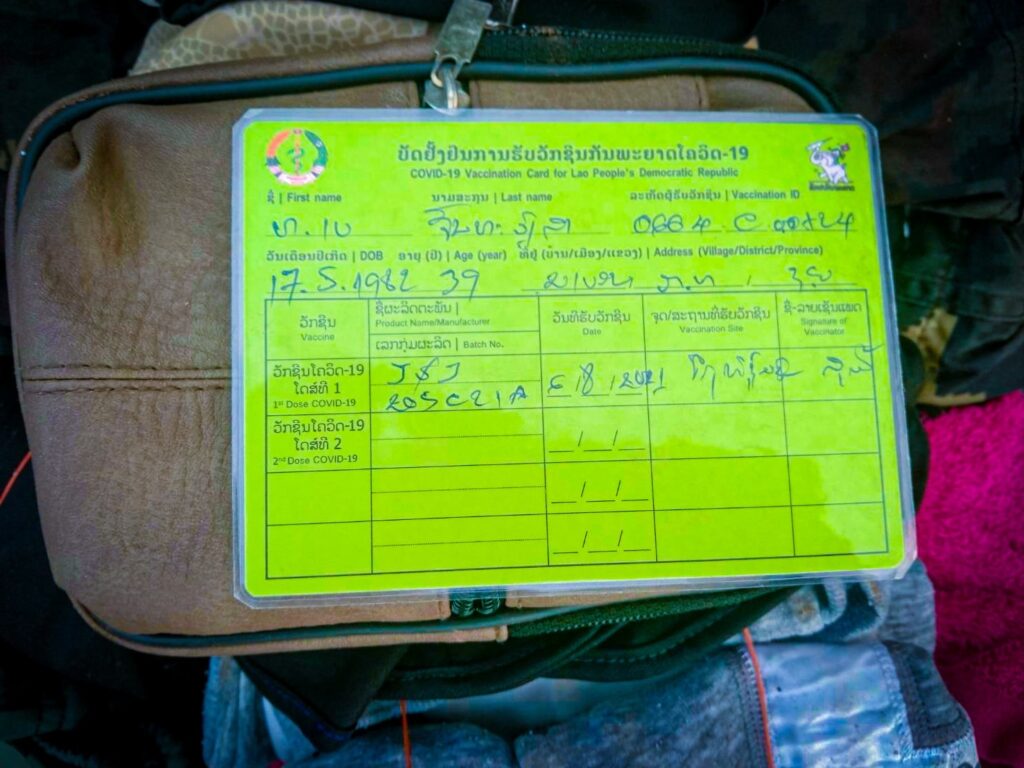 ບັດຢັ້ງຢືນການຮັບວັກຊິນກັນພະຍາດໂຄວິດ-19
COVID-19 Vaccination Card for Lao People's Democratic Republic
ຊື່ | First name ນາມສະກຸນ | Last name ລະຫັດຜູ້ຮັບວັກຊິນ | Vaccination ID
ວັນເດືອນປີເກີດ | DOB ອາຍຸ (ປີ) | Age (year) ທີ່ຢູ່ (ບ້ານ/ເມືອງ/ແຂວງ) | Address (Village/District/Province)
17.5.1982 39
ວັກຊິນ
Vaccine
ຊື່ຜະລິດຕະພັນ |
Product Name/Manufacturer
ເລກກຸ່ມຜະລິດ | Batch No.
ວັນທີຮັບວັກຊິນ
Date
ຈຸດ/ສະຖານທີ່ຮັບວັກຊິນ
Vaccination Site
ຊື່-ລາຍເຊັນແພດ
Signature of
Vaccinator
ວັກຊິນໂຄວິດ-19
ໂດສ໌ທີ 1
1st Dose COVID-19
J&J
205C21A
6/8/2021
ວັກຊິນໂຄວິດ-19
ໂດສ໌ທີ 2
2nd Dose COVID-19
__/__/__
__/__/__
__/__/__